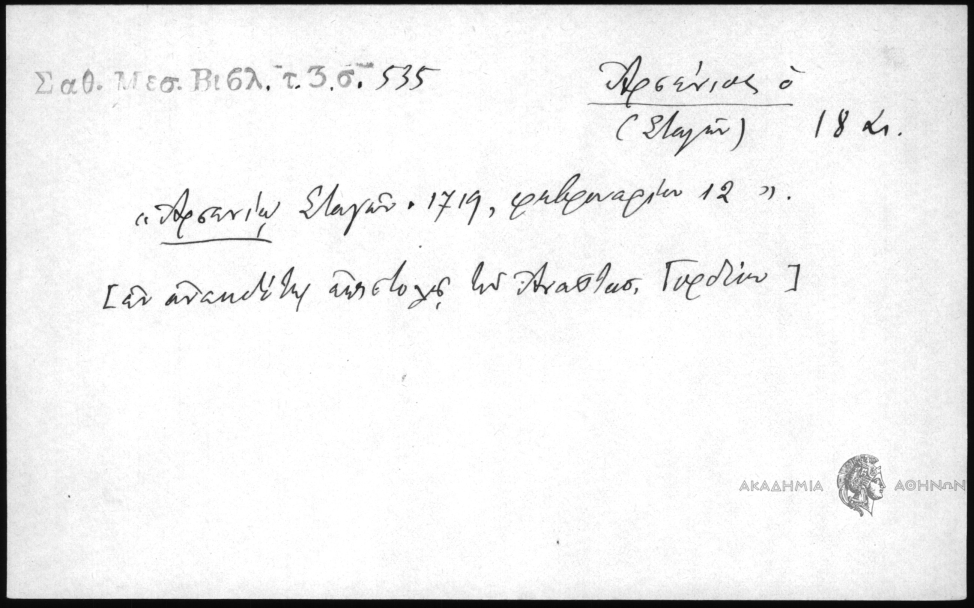 Σαθ. Μεσ. Βιβλ. τ. 3. σ. 535
Ἀρσένιος ὁ
(Σταγῶν) 18 αι.
«Ἀρσενίῳ Σταγῶν. 1719, φεβρουαρίου 12».
[ἐν ἀνεκδότῳ ἐπιστολῇ τοῦ Ἀναστασ. Γορδίου]
ΑΚΑΔΗΜΙΑ ΑΘΗΝΩΝ